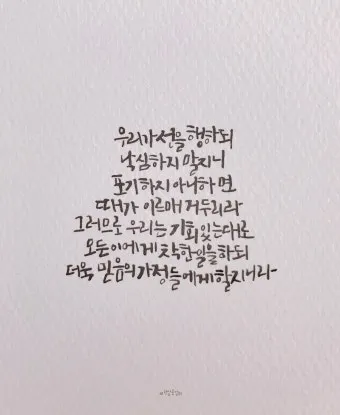 우리가 선을 행하되
낙심하지 말지니
포기하지 아니하면
때가 이르매 거두리라
그러므로 우리는 기회 있는대로
모든 이에게 착한 일을 하되
더욱 믿음의 가정들에게 할지니라